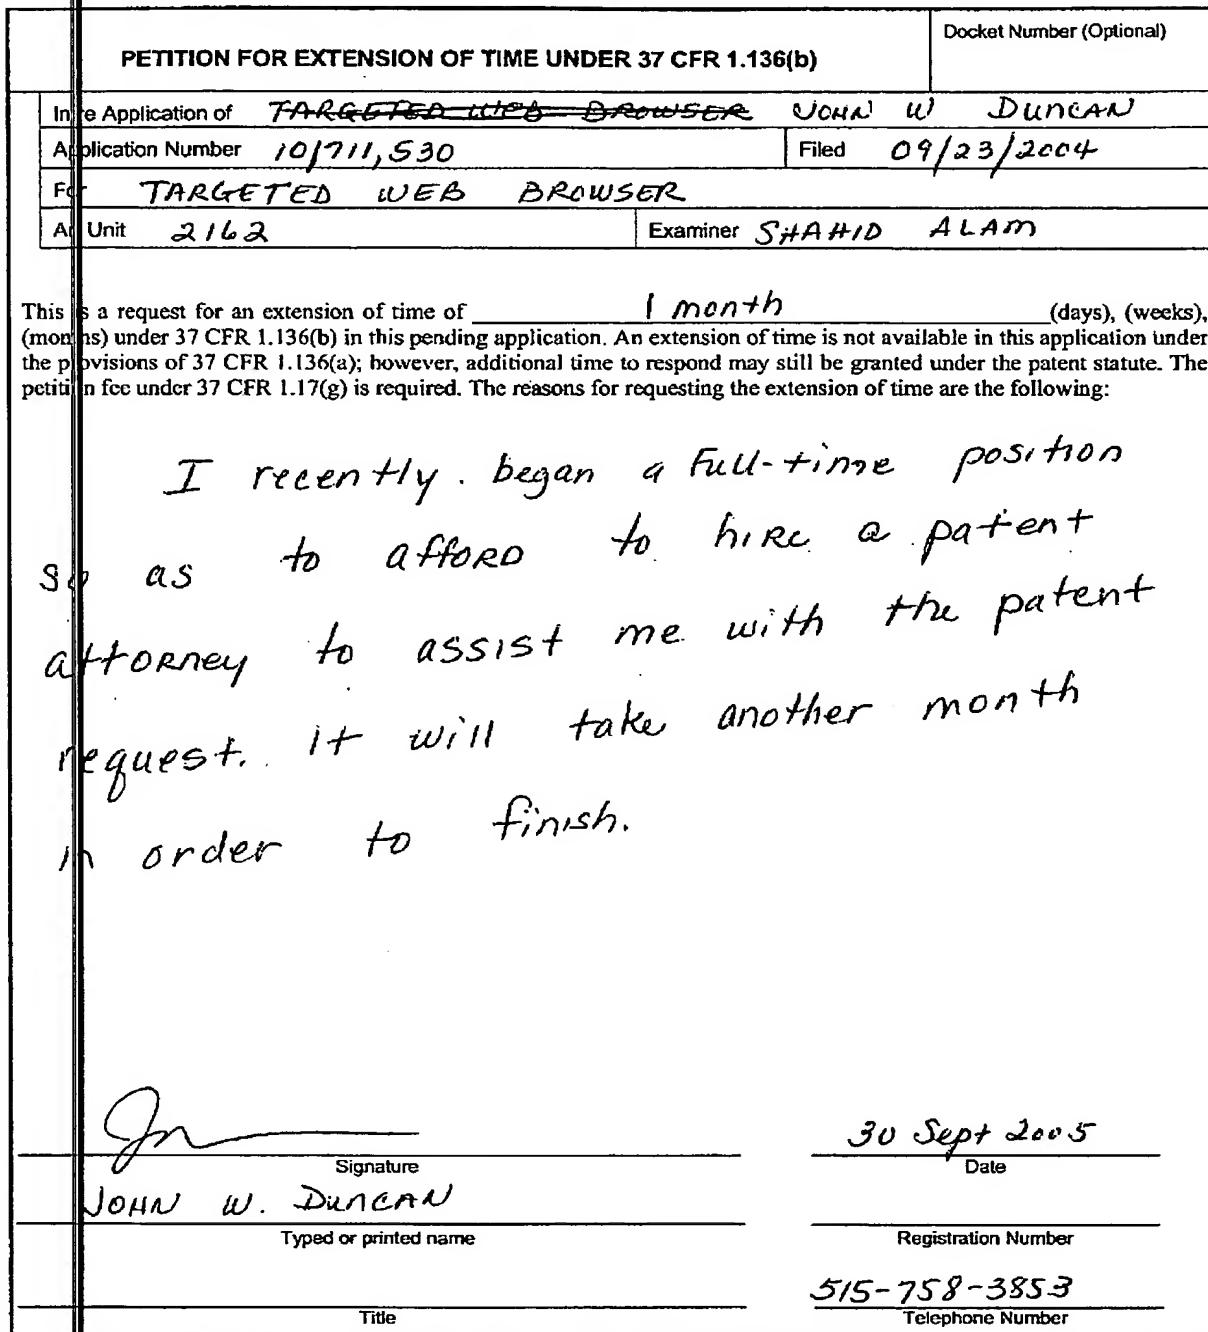 PETITION FOR EXTENSION OF TIME UNDER 37 CFR 1.136(b)
Docket Number (Optional)
In re Application of TARGETED WEB BROWSER JOHN W DUNCAN
Application Number 10/711,530 Filed 09/23/2004
For TARGETED WEB BROWSER
Art Unit 2162 Examiner SHAHID ALAM
This is a request for an extension of time of 1 month (days), (weeks),
(months) under 37 CFR 1.136(b) in this pending application. An extension of time is not available in this application under
the provisions of 37 CFR 1.136(a); however, additional time to respond may still be granted under the patent statute. The
petition fee under 37 CFR 1.17(g) is required. The reasons for requesting the extension of time are the following:
I recently began a Full-time position
so as to afford to hire a patent
attorney to assist me with the patent
request. It will take another month
in order to finish.
30 Sept 2005
Signature Date
JOHN W. DUNCAN
Typed or printed name Registration Number
515-758-3853
Title Telephone Number